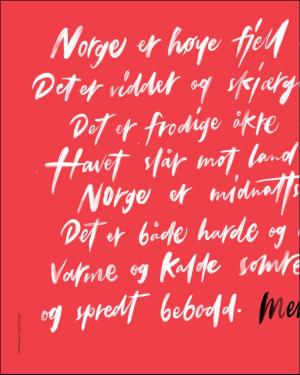 Norge er høye fjell
Det er vidder og skjærg
Det er frodige åkre
Havet slår mot land
Norge er midnatts
Det er både harde og
Varme og Kalde somre
og spredt bebodd. Men